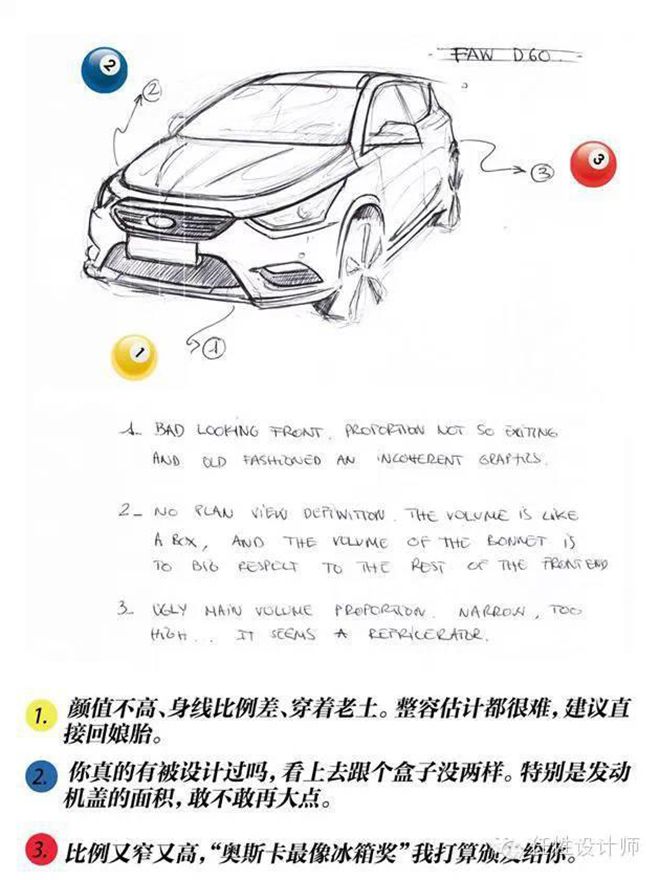 FAW D60
2
2
3
3
1
1
1_ BAD LOOKING FRONT. PROPORTION NOT SO EXITING
AND OLD FASHIONED AN INCOHERENT GRAPHICS.
2_ NO PLAN VIEW DEFINITION. THE VOLUME IS LIKE
A BOX, AND THE VOLUME OF THE BONNET IS
TO BIG RESPECT TO THE REST OF THE FRONT END
3_ UGLY MAIN VOLUME PROPORTION. NARROW, TOO
HIGH.. IT SEEMS A REFRIGERATOR.
1. 颜值不高、身线比例差、穿着老土。整容估计都很难，建议直
接回娘胎。
2. 你真的有被设计过吗，看上去跟个盒子没两样。特别是发动
机盖的面积，敢不敢再大点。
3. 比例又窄又高，“奥斯卡最像冰箱奖”我打算颁发给你。
任性设计师